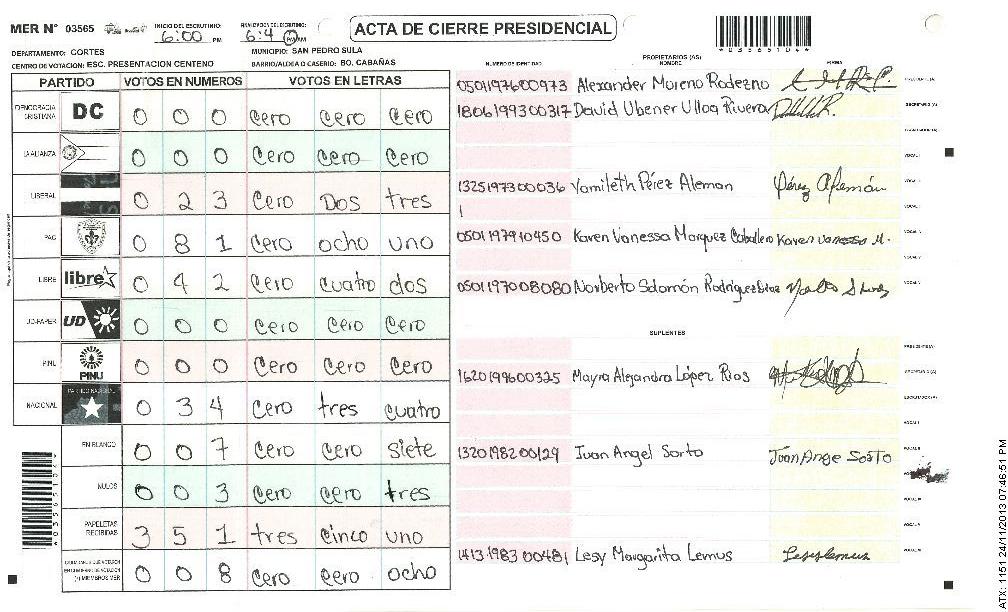 MER N° 03565
INICIO DEL ESCRUTINIO: 6:00 PM
FINALIZACION DEL ESCRUTINIO: 6:4
ACTA DE CIERRE PRESIDENCIAL
DEPARTAMENTO: CORTES
MUNICIPIO: SAN PEDRO SULA
CENTRO DE VOTACION: ESC. PRESENTACION CENTENO
BARRIO/ALDEA O CASERIO: BO. CABAÑAS
PARTIDO VOTOS EN NUMEROS VOTOS EN LETRAS
DEMOCRACIA CRISTIANA DC 0 0 0 Cero Cero Cero
LA ALIANZA 0 0 0 Cero Cero Cero
LIBERAL 0 2 3 Cero Dos tres
PAC 0 8 1 Cero ocho uno
LIBRE libre 0 4 2 Cero cuatro dos
UD-FAPER UD 0 0 0 Cero Cero Cero
PINU PINU 0 0 0 Cero Cero Cero
NACIONAL PARTIDO NACIONAL 0 3 4 Cero tres cuatro
EN BLANCO 0 0 7 Cero Cero siete
NULOS 0 0 3 Cero Cero tres
PAPELETAS RECIBIDAS 3 5 1 tres cinco uno
MIEMBROS MER 0 0 8 Cero cero ocho
PROPIETARIOS (AS)
NUMERO DE IDENTIDAD NOMBRE FIRMA
0501197600973 Alexander Moreno Rodezno
1806199300317 David Ubener Ulloa Rivera
1325197300036 Yamileth Pérez Aleman Pérez Alemán
1
0501197910450 Karen Vanessa Marquez Caballero Karen Vanessa M.
0501197008080 Norberto Salomón Rodriguez
SUPLENTES
1620199600325 Mayra Alejandra López Rios
1320198200129 Juan Angel Sorto Juan Ange Sosto
1413198300481 Lesy Margarita Lemus Lesylemus
ATX: 1151 24/11/2013 07:46:51 PM